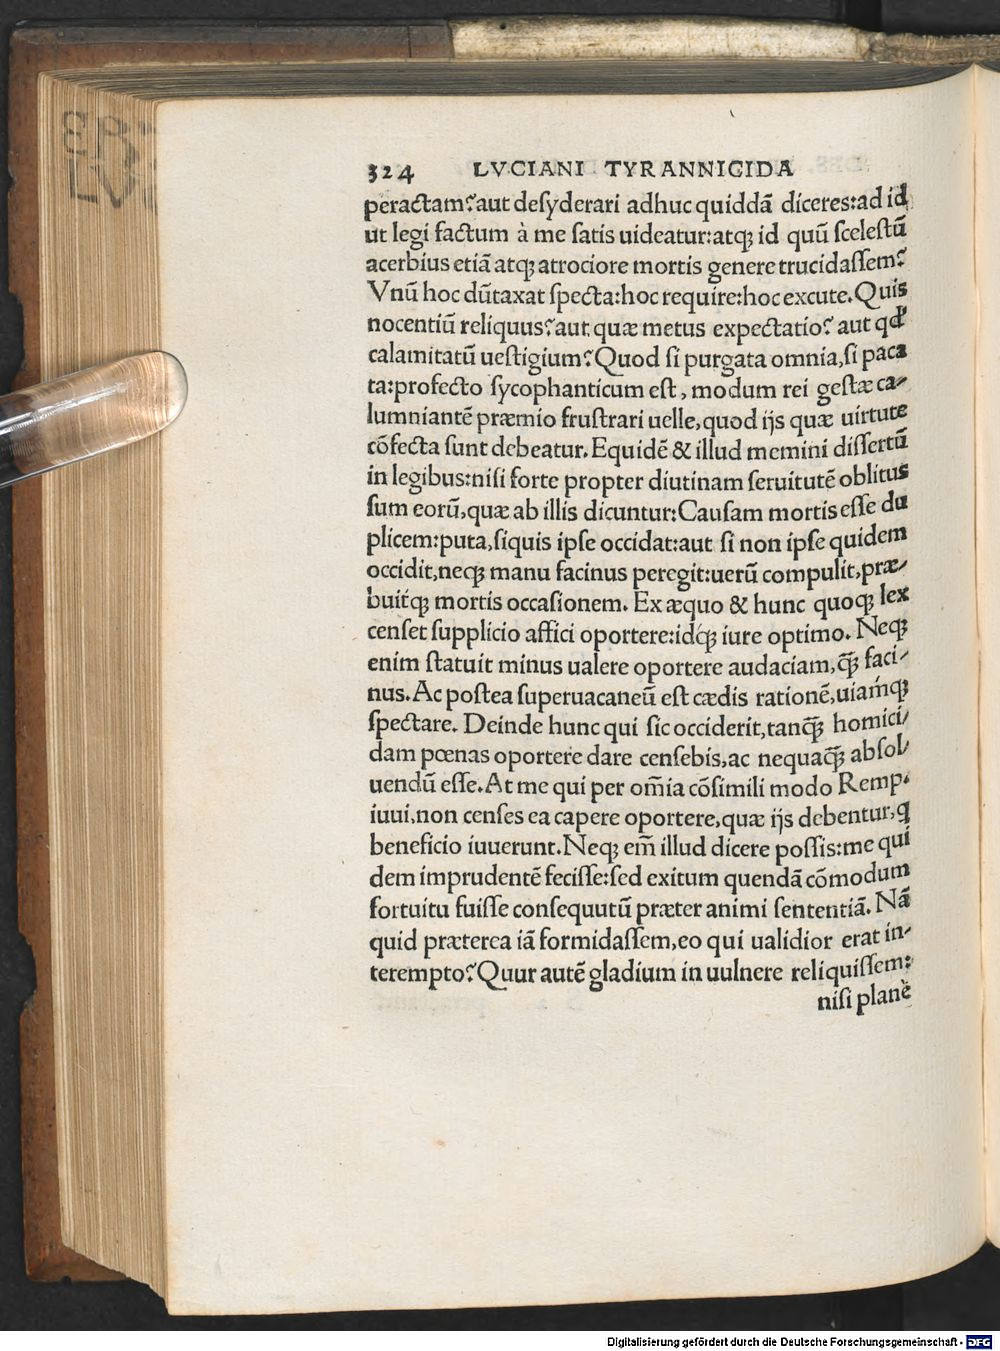 324 LVCIANI TYRANNICIDA
peractam? aut desyderari adhuc quiddā diceres: ad id
ut legi factum à me satis uideatur: atq; id quū scelestū
acerbius etiā atq; atrociore mortis genere trucidassem?
Vnū hoc dūtaxat specta: hoc require: hoc excute. Quis
nocentiū reliquus? aut quæ metus expectatio? aut qd'
calamitatū uestigium? Quod si purgata omnia, si paca
ta: profecto sycophanticum est, modum rei gestæ ca-
lumniantē præmio frustrari uelle, quod ijs quæ uirtute
cōfecta sunt debeatur. Equidē & illud memini dissertū
in legibus: nisi forte propter diutinam seruitutē oblitus
sum eorū, quæ ab illis dicuntur: Causam mortis esse du
plicem: puta, siquis ipse occidat: aut si non ipse quidem
occidit, neq; manu facinus peregit: uerū compulit, præ-
buitq; mortis occasionem. Ex æquo & hunc quoq; lex
censet supplicio affici oportere: idq; iure optimo. Neq;
enim statuit minus ualere oportere audaciam, q̄; faci-
nus. Ac postea superuacaneū est cædis rationē, uiamq;
spectare. Deinde hunc qui sic occiderit, tanq̄; homici-
dam pœnas oportere dare censebis, ac nequaq̄; absol-
uendū esse. At me qui per om̄ia cōsimili modo Remp.
iuui, non censes ea capere oportere, quæ ijs debentur, q
beneficio iuuerunt. Neq; em̄ illud dicere possis: me qui
dem imprudentē fecisse: sed exitum quendā cōmodum
fortuitu fuisse consequutū præter animi sententiā. Nā
quid præterea iā formidassem, eo qui ualidior erat in-
terempto? Quur autē gladium in uulnere reliquissem:
nisi planè
Digitalisierung gefördert durch die Deutsche Forschungsgemeinschaft - DFG